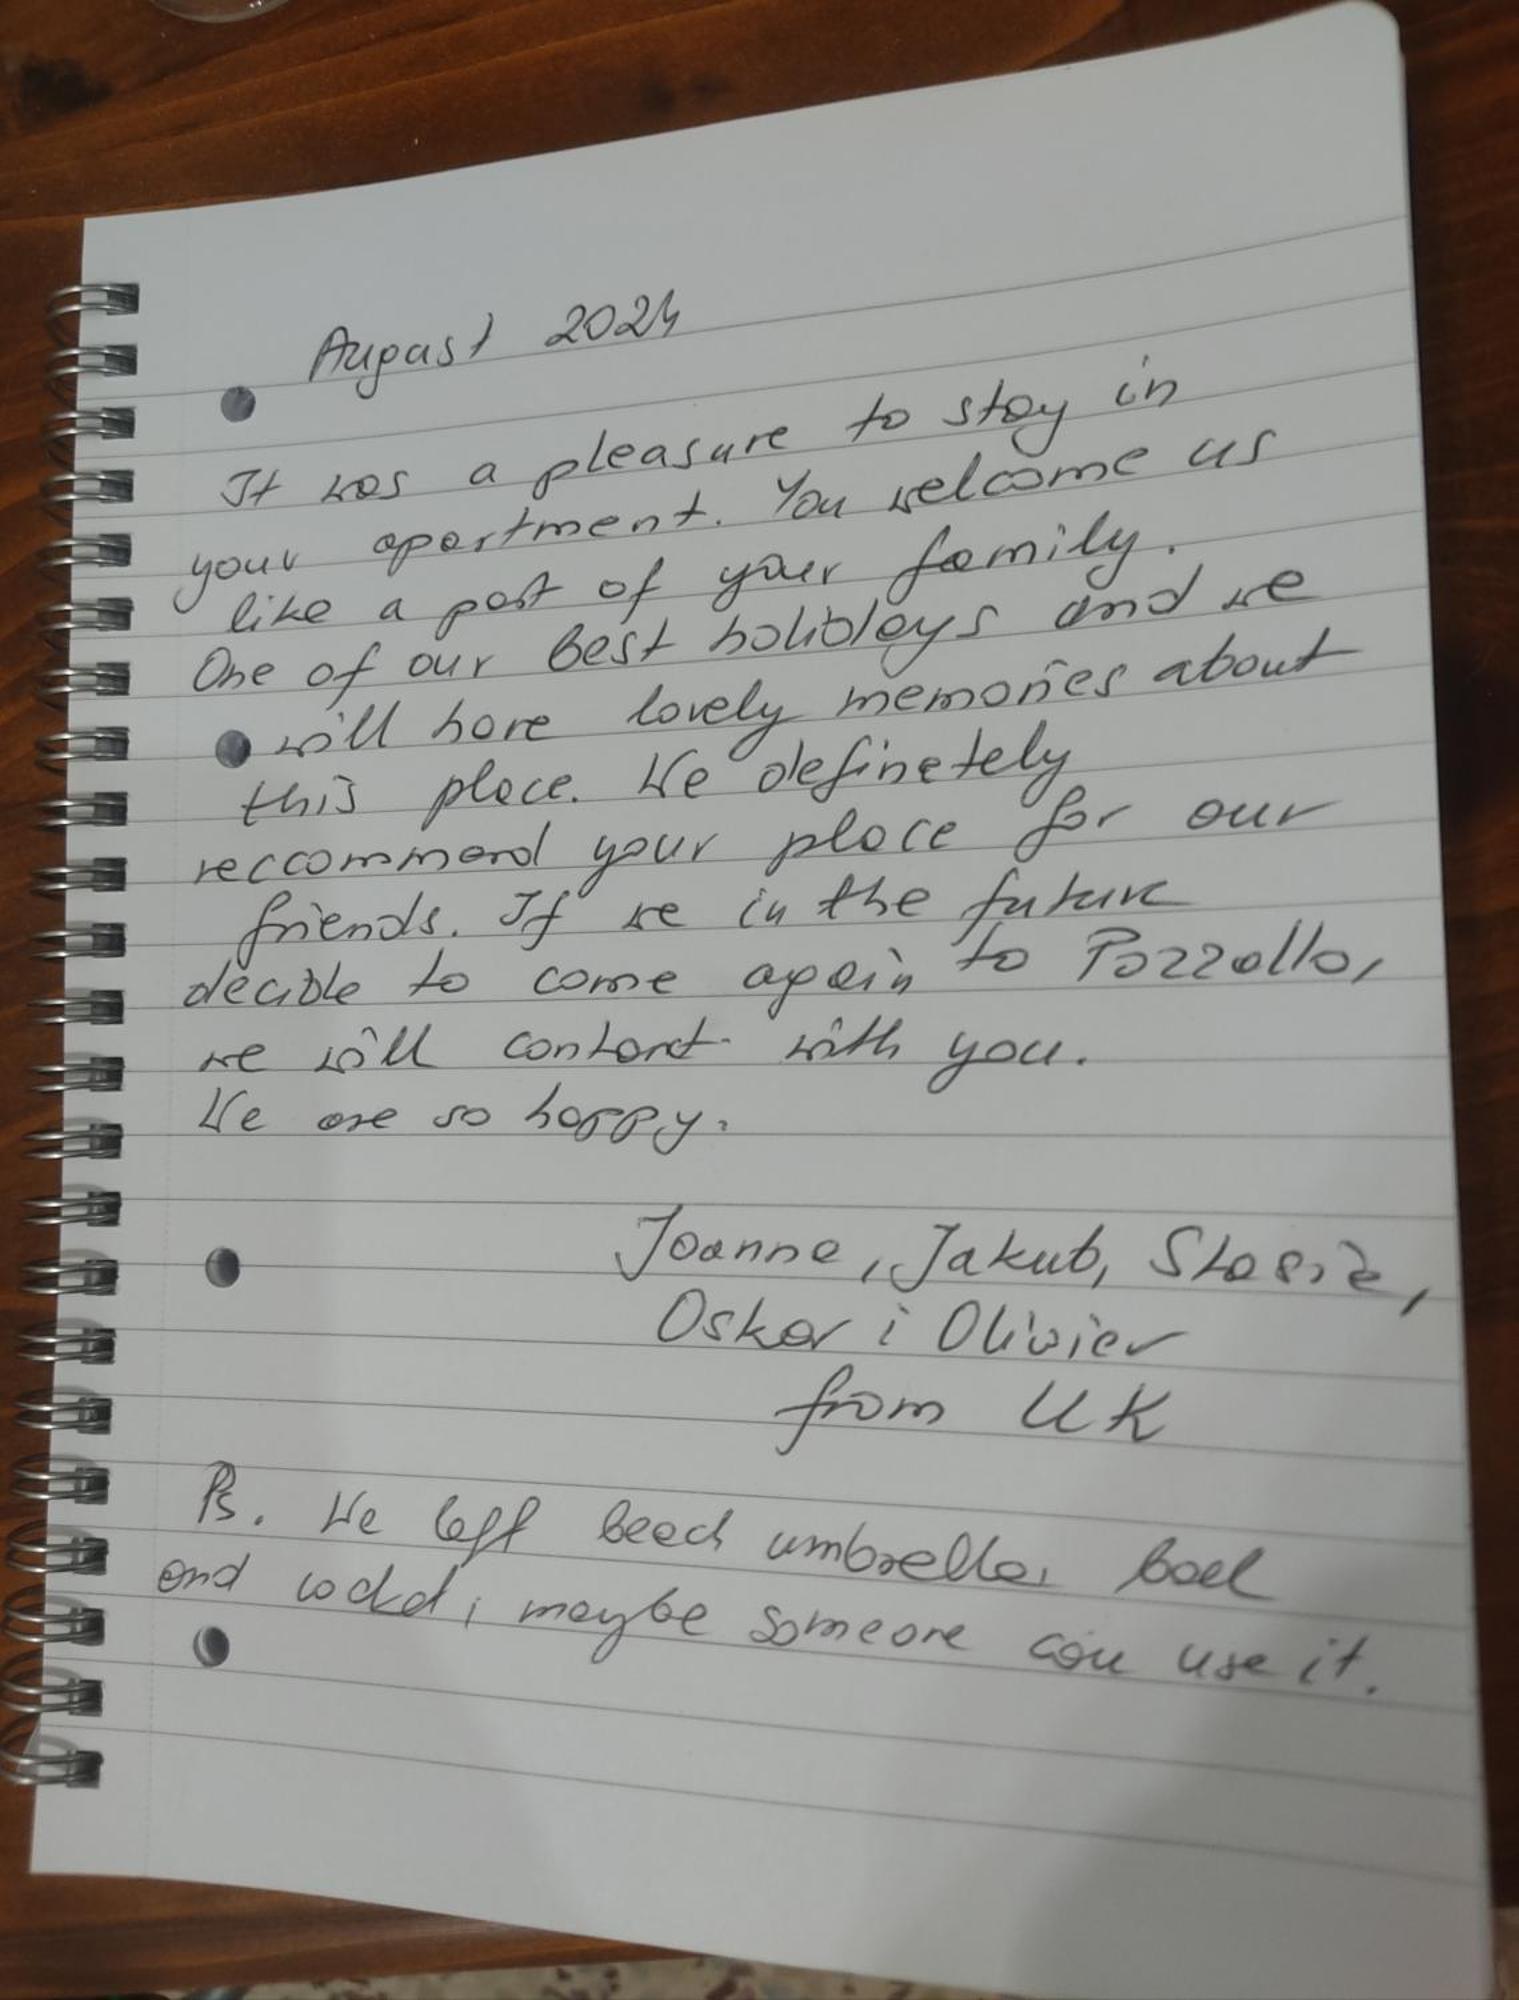 August 2024
It was a pleasure to stay in
your apartment. You welcome us
like a part of your family.
One of our best holidays and we
will have lovely memories about
this place. We definetely
reccommend your place for our
friends. If we in the future
decide to come again to Pozzallo,
we will contact with you.
We are so happy.
Joanna, Jakub, Stasia,
Oskar i Olivier
from UK
Ps. We left beach umbrella,
and maybe someone can use it.